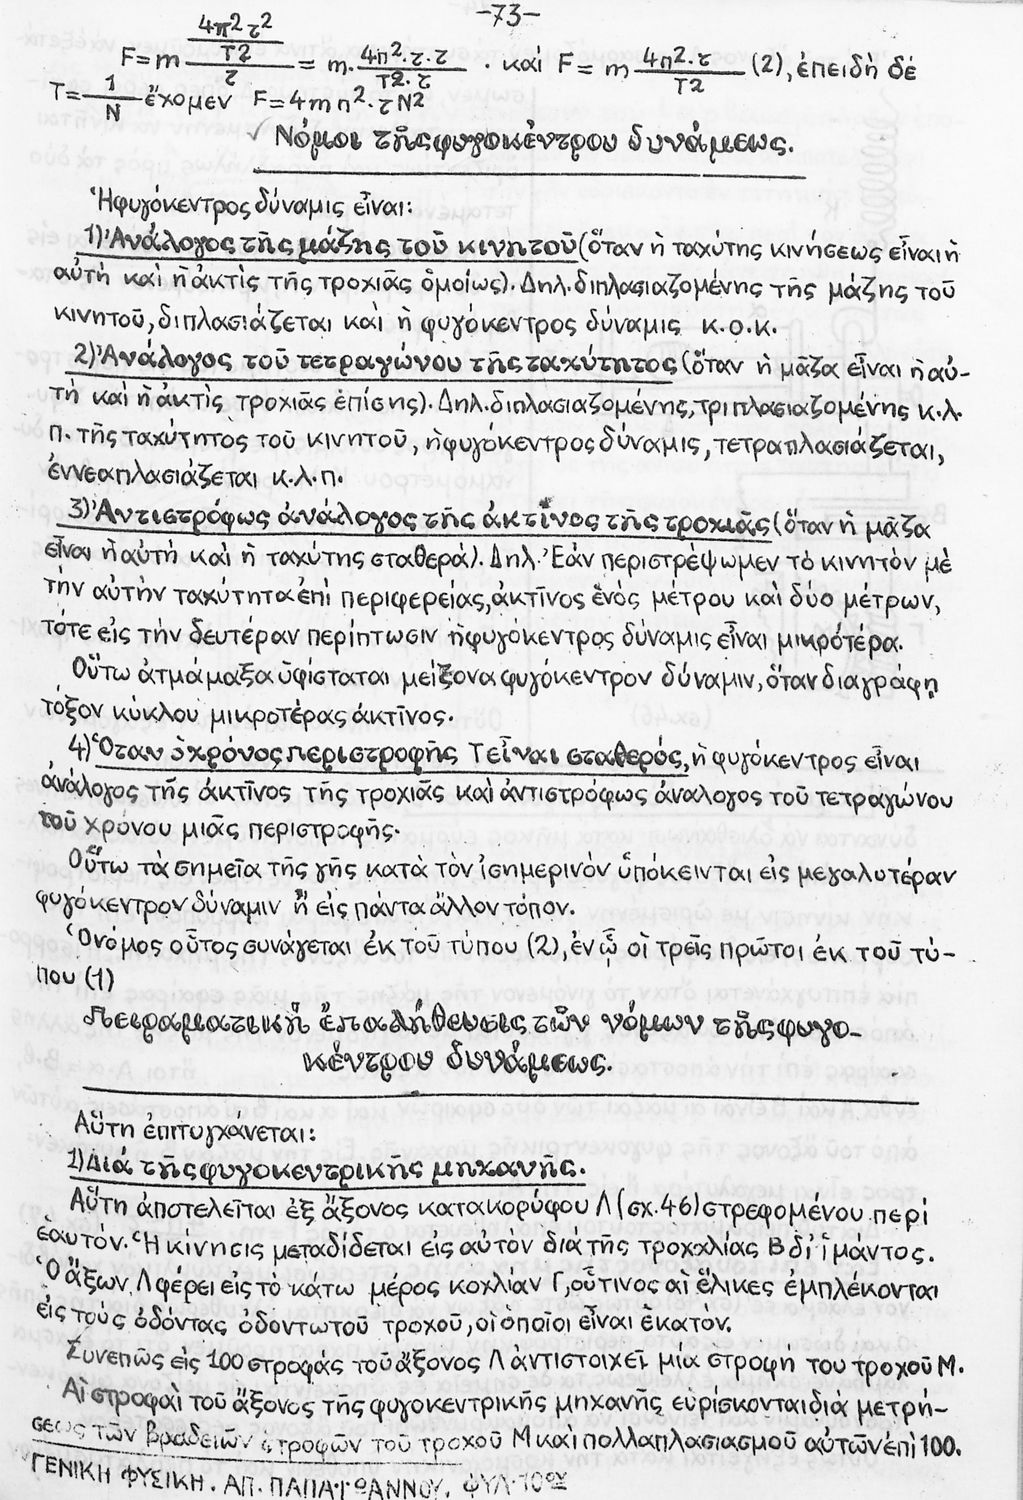 -73-
F=m 4π²τ²/T2 / τ = m. 4π².τ.τ / T2.τ . καὶ F = m 4π².τ / T2 (2), ἐπειδὴ δέ
T= 1/N ἔχομεν F=4mπ².τN2
Νόμοι τῆς φυγοκέντρου δυνάμεως.
Ἡ φυγόκεντρος δύναμις εἶναι:
1) Ἀνάλογος τῆς μάζης τοῦ κινητοῦ (ὅταν ἡ ταχύτης κινήσεως εἶναι ἡ
αὐτὴ καὶ ἡ ἀκτὶς τῆς τροχιᾶς ὁμοίως). Δηλ. διπλασιαζομένης τῆς μάζης τοῦ
κινητοῦ, διπλασιάζεται καὶ ἡ φυγόκεντρος δύναμις κ.ο.κ.
2) Ἀνάλογος τοῦ τετραγώνου τῆς ταχύτητος (ὅταν ἡ μᾶζα εἶναι ἡ αὐ-
τὴ καὶ ἡ ἀκτὶς τροχιᾶς ἐπίσης). Δηλ. διπλασιαζομένης, τριπλασιαζομένης κ.λ.
π. τῆς ταχύτητος τοῦ κινητοῦ, ἡ φυγόκεντρος δύναμις, τετραπλασιάζεται,
ἐννεαπλασιάζεται κ.λ.π.
3) Ἀντιστρόφως ἀνάλογος τῆς ἀκτῖνος τῆς τροχιᾶς (ὅταν ἡ μᾶζα
εἶναι ἡ αὐτὴ καὶ ἡ ταχύτης σταθερά). Δηλ. Ἐὰν περιστρέψωμεν τὸ κινητὸν μὲ
τὴν αὐτὴν ταχύτητα ἐπὶ περιφερείας, ἀκτῖνος ἑνὸς μέτρου καὶ δύο μέτρων,
τότε εἰς τὴν δευτέραν περίπτωσιν ἡ φυγόκεντρος δύναμις εἶναι μικρότέρα.
Οὕτω ἀτμάμαξα ὑφίσταται μείζονα φυγόκεντρον δύναμιν, ὅταν διαγράφῃ
τόξον κύκλου μικροτέρας ἀκτῖνος.
4) Ὅταν ὁ χρόνος περιστροφῆς T εἶναι σταθερός, ἡ φυγόκεντρος εἶναι
ἀνάλογος τῆς ἀκτῖνος τῆς τροχιᾶς καὶ ἀντιστρόφως ἀνάλογος τοῦ τετραγώνου
τοῦ χρόνου μιᾶς περιστροφῆς.
Οὕτω τὰ σημεῖα τῆς γῆς κατὰ τὸν ἰσημερινὸν ὑπόκεινται εἰς μεγαλυτέραν
φυγόκεντρον δύναμιν ἢ εἰς πάντα ἄλλον τόπον.
Ὁ νόμος οὗτος συνάγεται ἐκ τοῦ τύπου (2), ἐν ᾧ οἱ τρεῖς πρῶτοι ἐκ τοῦ τύ-
που (1)
Πειραματικὴ ἐπαλήθευσις τῶν νόμων τῆς φυγο-
κέντρου δυνάμεως.
Αὕτη ἐπιτυγχάνεται:
1) Διὰ τῆς φυγοκεντρικῆς μηχανῆς.
Αὕτη ἀποτελεῖται ἐξ ἄξονος κατακορύφου Λ (σχ.46) στρεφομένου περὶ
ἑαυτόν. Ἡ κίνησις μεταδίδεται εἰς αὐτὸν διὰ τῆς τροχαλίας Β δι' ἱμάντος.
Ὁ ἄξων Λ φέρει εἰς τὸ κάτω μέρος κοχλίαν Γ, οὗτινος αἱ ἕλικες ἐμπλέκονται
εἰς τοὺς ὀδόντας ὀδοντωτοῦ τροχοῦ, οἱ ὁποῖοι εἶναι ἑκατόν.
Συνεπῶς εἰς 100 στροφὰς τοῦ ἄξονος Λ ἀντιστοιχεῖ μία στροφὴ τοῦ τροχοῦ Μ.
Αἱ στροφαὶ τοῦ ἄξονος τῆς φυγοκεντρικῆς μηχανῆς εὑρίσκονται διὰ μετρή-
σεως τῶν βραδειῶν στροφῶν τοῦ τροχοῦ Μ καὶ πολλαπλασιασμοῦ αὐτῶν ἐπὶ 100.
ΓΕΝΙΚΗ ΦΥΣΙΚΗ. ΑΠ. ΠΑΠΑΪΩΑΝΝΟΥ. ΦΥΛ. 10ον